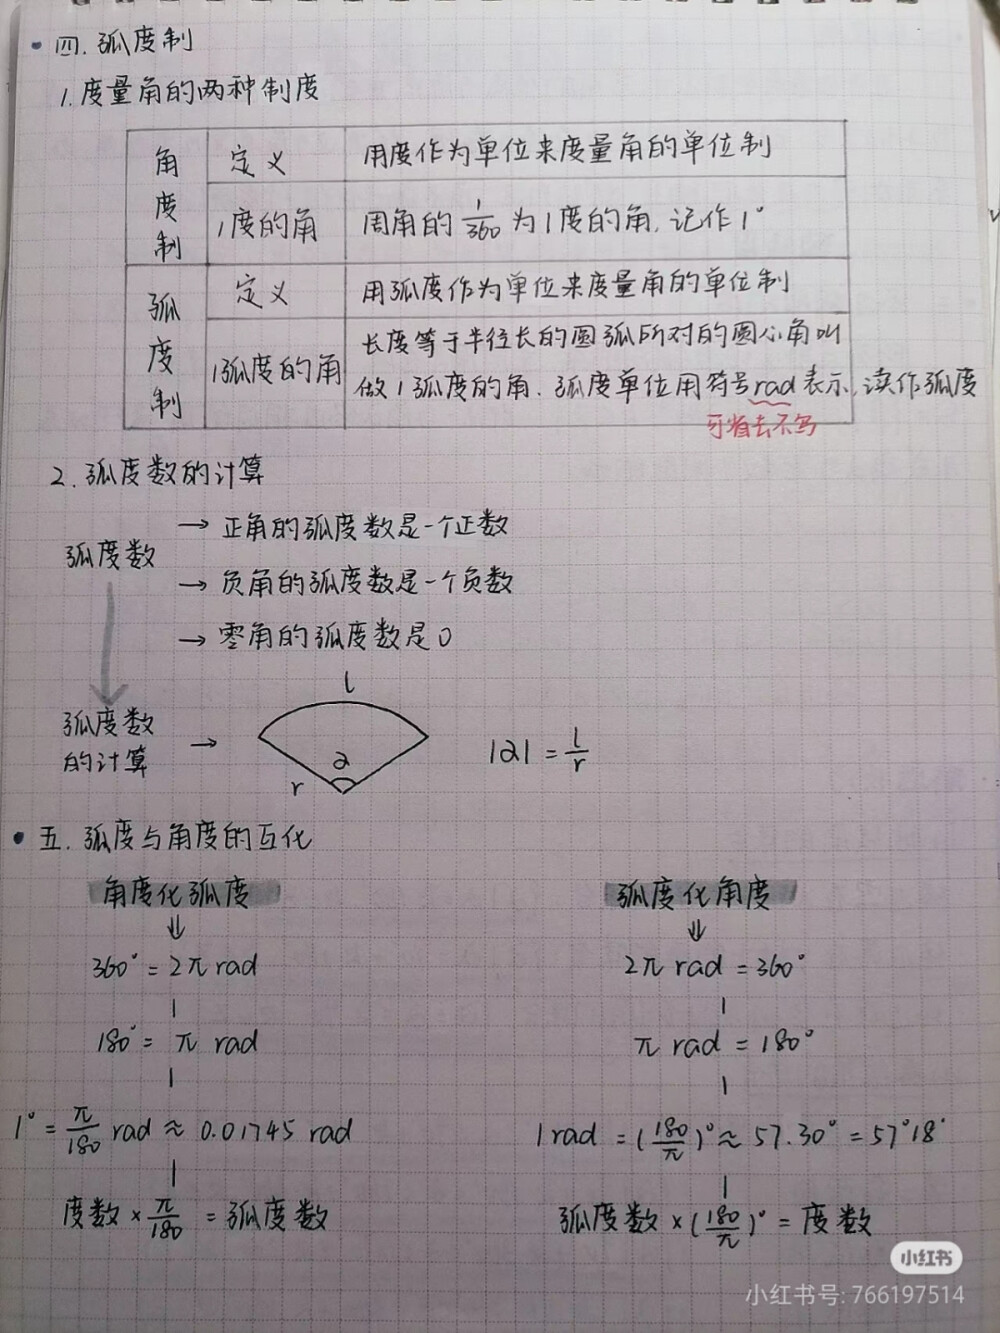 四. 弧度制
1. 度量角的两种制度
角度制
定义 用度作为单位来度量角的单位制
1度的角 周角的 1/360 为1度的角, 记作1°
弧度制
定义 用弧度作为单位来度量角的单位制
1弧度的角 长度等于半径长的圆弧所对的圆心角叫
做1弧度的角. 弧度单位用符号rad表示, 读作弧度
可省去不写
2. 弧度数的计算
弧度数
→ 正角的弧度数是一个正数
→ 负角的弧度数是一个负数
→ 零角的弧度数是0
弧度数
的计算 →
l
α
r
|α| = l/r
五. 弧度与角度的互化
角度化弧度 弧度化角度
360° = 2π rad 2π rad = 360°
180° = π rad π rad = 180°
1° = π/180 rad ≈ 0.01745 rad 1 rad = (180/π)° ≈ 57.30° = 57°18′
度数 × π/180 = 弧度数 弧度数 × (180/π)° = 度数
小红书
小红书号: 766197514